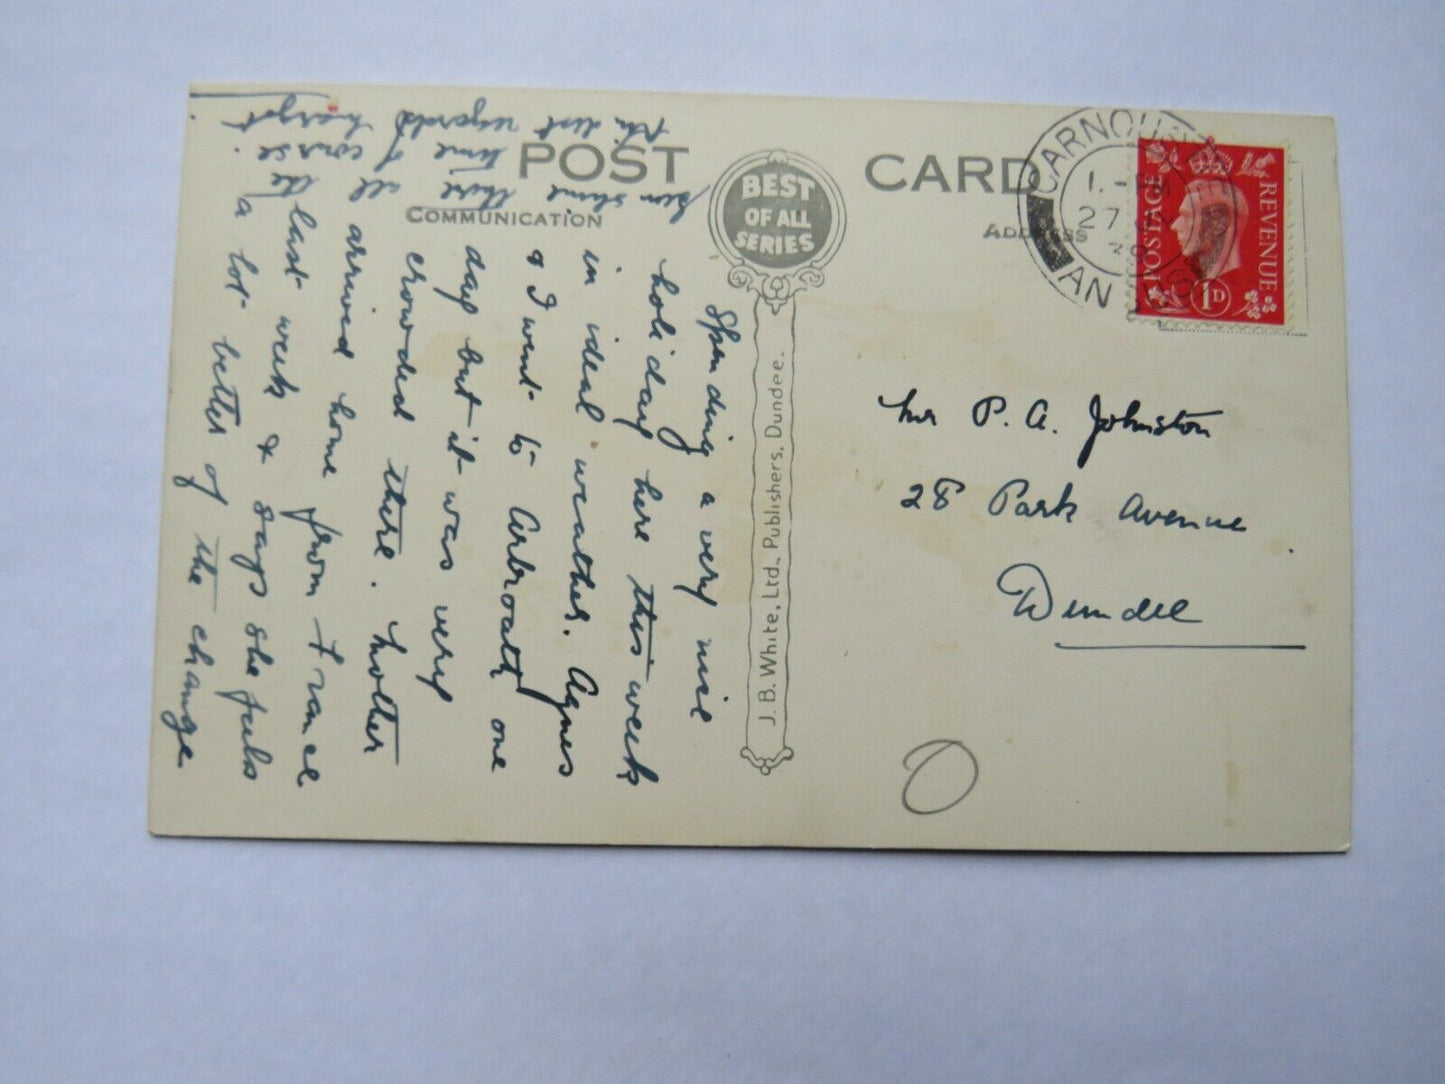 POST CARD
COMMUNICATION
ADDRESS
BEST
OF ALL
SERIES
J. B. White, Ltd., Publishers, Dundee.
CARNOUSTIE
1. - PM
27
AN
POSTAGE
REVENUE
1D
Mr P. A. Johnston
28 Park Avenue
Dundee
Spending a very nice
holiday here this week
in ideal weather. Agnes
& I went to Arbroath one
day but it was very
crowded there. Mother
arrived home from France
last week & says she feels
a lot better of the change
sun shine there all the
time of course.
Kindest regards
Margt